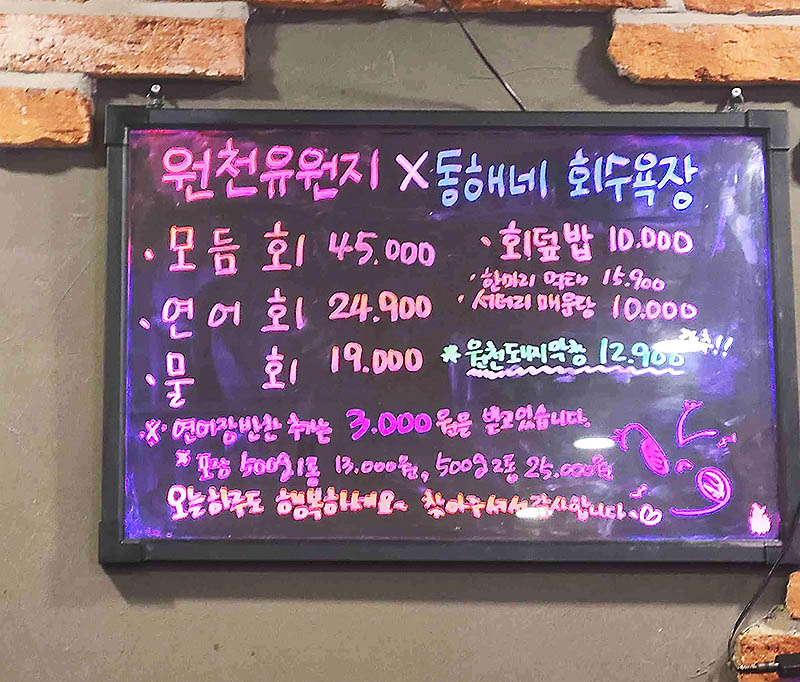 원천유원지 X 동해네 회수욕장
· 모듬 회 45.000
· 연어 회 24.900
· 물 회 19.000
· 회덮밥 10.000
· 한마리 먹태 15.900
· 서더리 매운탕 10.000
* 원천돼지막창 12.900 강추!!
※ 연어장반찬 추가는 3.000원을 받고있습니다.
* 포장 500g 1통 13.000원, 500g 2통 25.000원
오늘하루도 행복하세요~ 찾아주셔서 감사합니다~♡